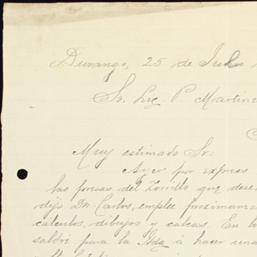 Durango, 25 de Julio
Sr. Luz. P. Martinez
Muy estimado Sr.
Ayer por express
las formas del Zorrillo que dese
dijo Dn Carlos, emplee proximame
calculos, dibujos y calcas. En
salón para la a hacer una